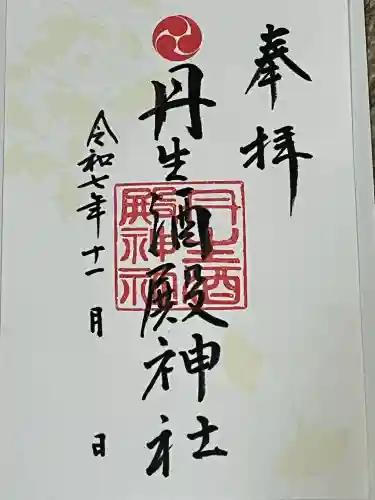 奉拝
丹生酒殿神社
丹生酒殿神社
令和七年十一月 日